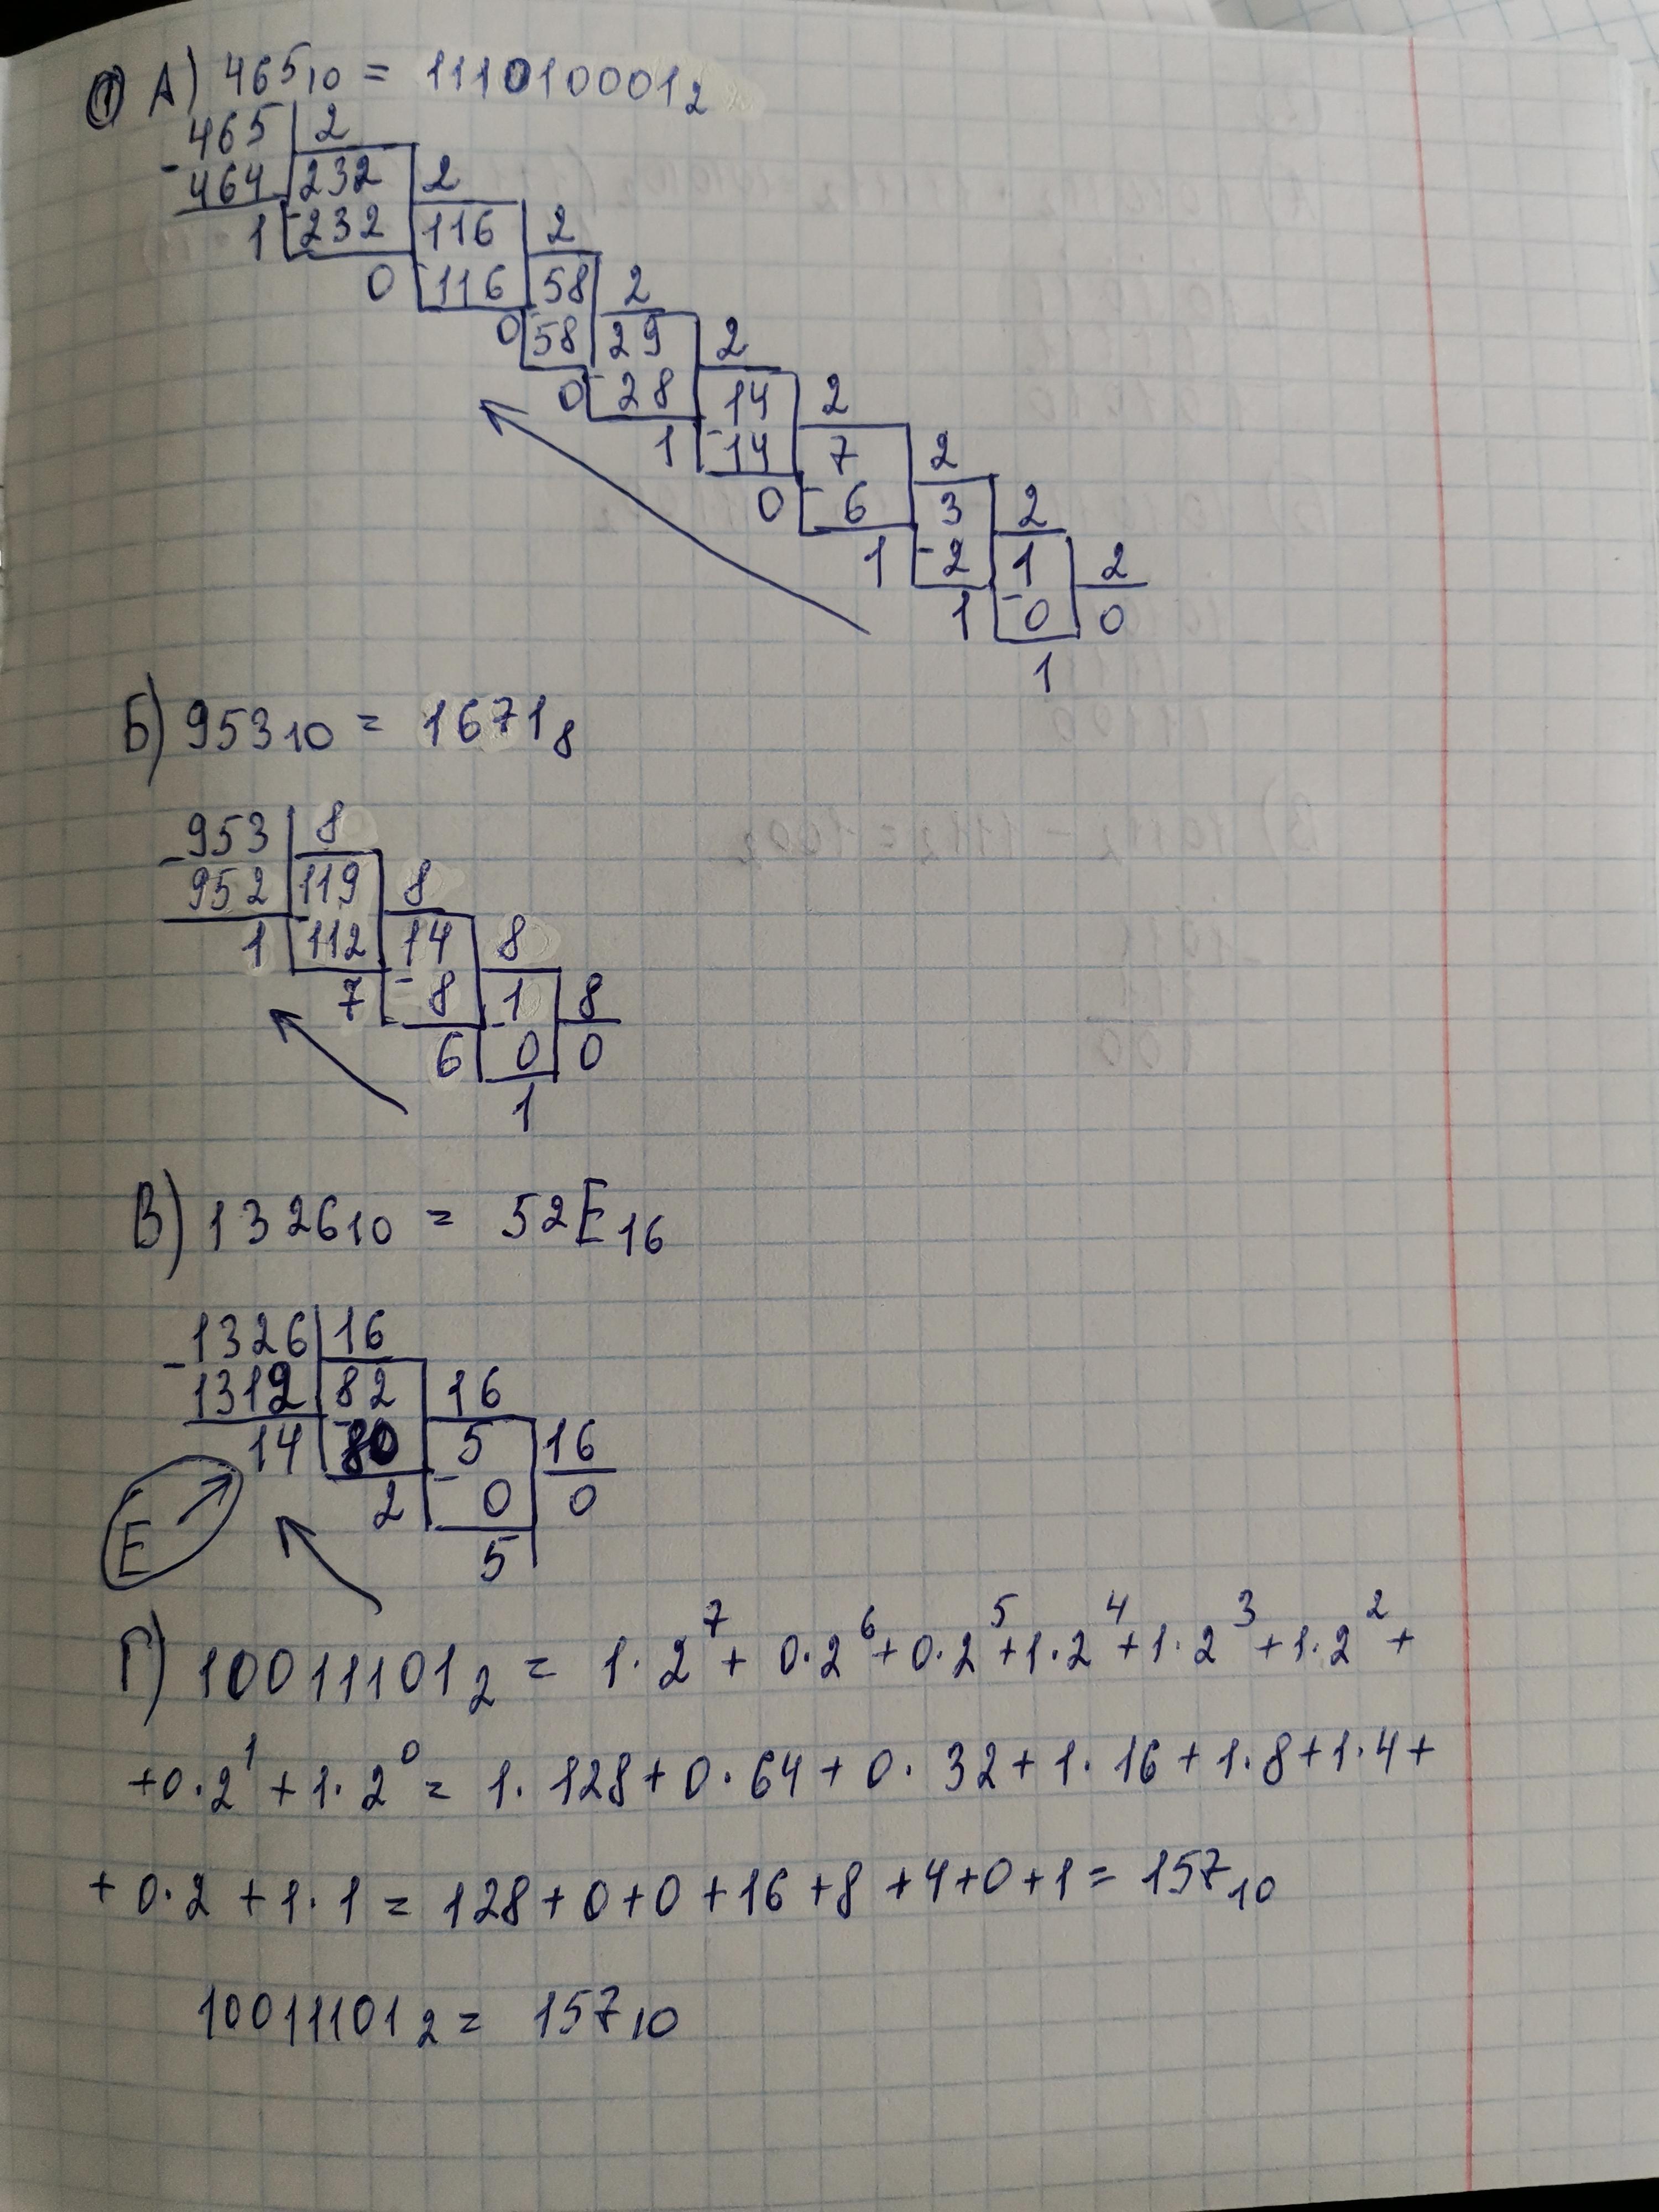 ① А) 465₁₀ = 111010001₂
465 | 2
- 464 | 232 | 2
1 | - 232 | 116 | 2
0 | - 116 | 58 | 2
0 | - 58 | 29 | 2
0 | - 28 | 14 | 2
1 | - 14 | 7 | 2
0 | - 6 | 3 | 2
1 | - 2 | 1 | 2
1 | - 0 | 0
1
Б) 953₁₀ = 1671₈
- 953 | 8
952 | 119 | 8
1 | - 112 | 14 | 8
7 | - 8 | 1 | 8
6 | - 0 | 0
1
В) 1326₁₀ = 52E₁₆
- 1326 | 16
1312 | 82 | 16
14 | - 80 | 5 | 16
E 2 | - 0 | 0
5
Г) 10011101₂ = 1·2⁷ + 0·2⁶ + 0·2⁵ + 1·2⁴ + 1·2³ + 1·2² +
+ 0·2¹ + 1·2⁰ = 1·128 + 0·64 + 0·32 + 1·16 + 1·8 + 1·4 +
+ 0·2 + 1·1 = 128 + 0 + 0 + 16 + 8 + 4 + 0 + 1 = 157₁₀
10011101₂ = 157₁₀